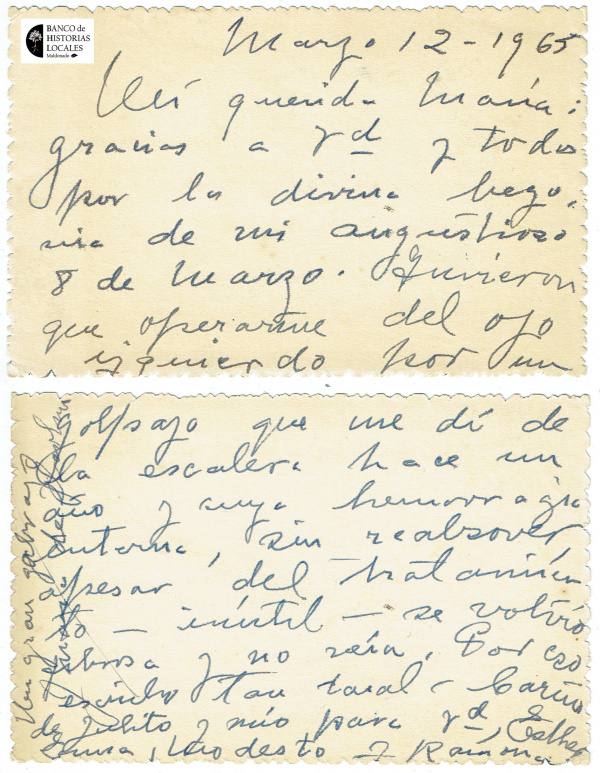 BANCO de
HISTORIAS
LOCALES
Maldonado
Marzo 12-1965
Mi querida María:
gracias a Vd y todos
por la divina bego-
nia de mi angustioso
8 de Marzo. Tuvieron
que operarme del ojo
izquierdo por un
golpazo que me dí de
la escalera hace un
año y cuya hemorragia
interna, sin reabsover,
apesar del tratamien
to - inútil - se volvió
fibrosa y no veía. Por eso
escribo tan mal. Cariños
de Julito y mío para Vd, Esther
Emma, Modesto y Ramona
Un gran abrazo de